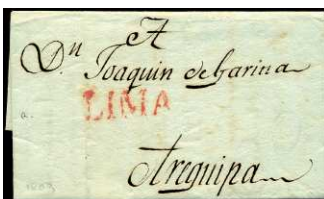 A
Dn Joaquin de Garina
LIMA
Arequipa
a.